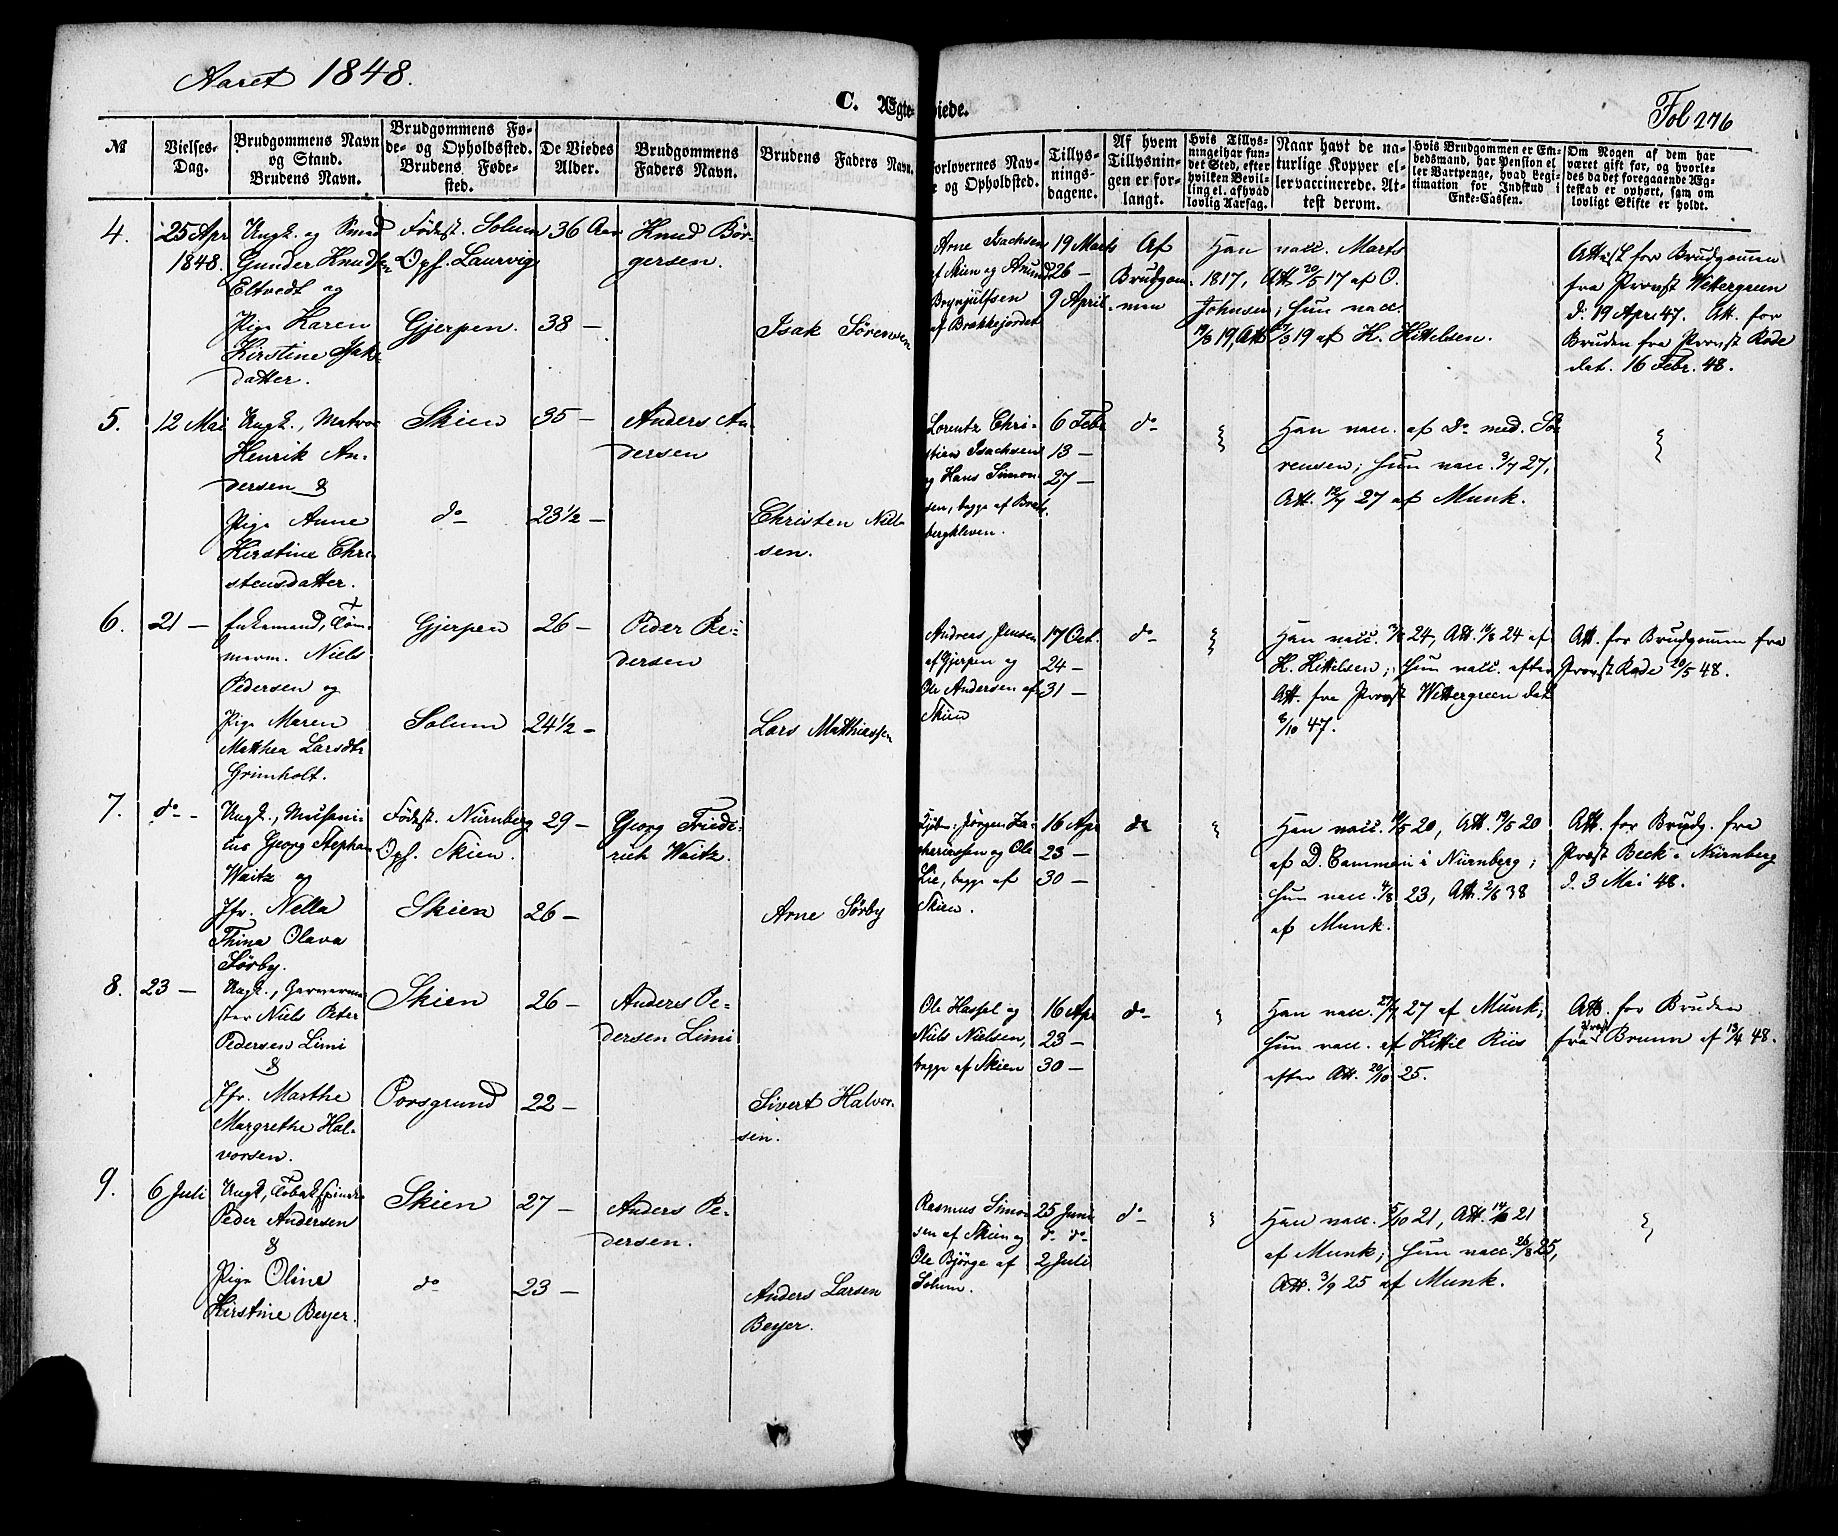 Aaret 1848.
C. Ægte- viede.
Fol 276
№
Vielses-
Dag.
Brudgommens Navn
og Stand.
Brudens Navn.
Brudgommens Fø-
de- og Opholdssted.
Brudens Føde-
sted.
De Viedes
Alder.
Brudgommens
Faders Navn.
Brudens Faders Navn.
Forlovernes Nav-
e og Opholdsted.
Tillys-
nings-
dagene.
Af hvem
Tillysnin-
gen er for-
langt.
Hvis Tillys-
ningei har fun-
det Sted, efter
hvilken Bevil-
ling el. afhvad
lovlig Aarsag.
Naar havt de na-
turlige Kopper el-
ler vaccinerede. At-
test derom.
Hvis Brudgommen er Em-
bedsmand, har Pension el
ler Vartpenge, hvad Legi-
timation for Indskud i
Enke-Cassen.
Om Nogen af dem har
været gift før, og hvorle-
des da det foregaaende Æg-
teskab er ophørt, sam om
lovligt Skifte er holdt.
4.
25 Apr
1848.
Ungk. og Smed
Gunder Knudsen
Eltvedt og
Pige Karen
Kirstine Isak-
datter.
Fødest. Solum
Opf. Laurvig
Gjerpen.
36 Aar
38 —
Knud Bør-
gersen.
Isak Sørensen
Arne Isachsen
af Skien og Amund
Brynjulfsen
af Brekkejordet
19 Marts
26 —
9 April
Af
Brudgom-
men
Han vacc. Marts
1817, Att. 20/5 17 af O.
Johnsen; hun vacc.
19, Att. 19 af H. Kittelsen.
Attest for Brudgommen
fra Provst Wettergreen
d. 19 Apr. 47. Att. for
Bruden fra Provst Rode
det. 16 Febr. 48.
5.
12 Mai
Ungk., Matros
Henrik An-
dersen &
Pige Anne
Kirstine Chri-
stensdatter.
Skien
do
35 —
23½ —
Anders An-
dersen
Christen Niel-
sen.
Lorentz Chri-
stian Isachsen
og Hans Simon-
sen, begge af Brat-
bergkleven.
6 Febr
13 —
27 —
do
Han vacc. af Do med. Sö-
rensen; hun vacc. 3/7 27,
Att. 12/7 27 af Munk.
6.
21 —
Enkemand, Töm-
merm. Niels
Pedersen og
Pige Maren
Matthea Larsdtr
Grimholt.
Gjerpen
Solum
26 —
24½ —
Peder Pe-
dersen
Lars Matthiassen
Andreas Jensen
af Gjerpen og
Ole Andersen af
Skien
17 Oct.
24 —
31 —
do
Han vacc. 24, Att. 24 af
H. Kittelsen; hun vacc. efter
Att. fra Provst Wettergreen det
8/10 47.
Att. for Brudgommen fra
Provst Rode 20/5 48.
7.
do -
Ungk., Musici-
cus Georg Stephan
Waitz og
Jfr. Nella
Thina Olava
Sørby.
Födest. Nürnberg
Opf. Skien.
Skien
29 —
26 —
Georg Friede-
rich Waitz.
Arne Sørby
Jørgen Za-
chariassen og Ole
Lie, begge af
Skien.
16 Apr
23 —
30 —
do
Han vacc. 5 20, Att. 19/5 20
af D. Cammen i Nürnberg;
hun vacc. 4/8 23, Att. 2/8 38
af Munk.
Att. for Brudg. fra
Præst Beck i Nürnberg
d. 3 Mai 48.
8.
23 —
Ungk., Garverme-
ster Niels Peter
Pedersen Limi
&
Jfr. Marthe
Margrethe Hal-
vorsen.
Skien
Porsgrund
26 —
22 —
Anders Pe-
dersen Limi
Sivert Halvor-
sen.
Ole Hassel og
Niels Nielsen,
begge af Skien
16 Apr
23 —
30 —
do
Han vacc. 27/7 27 af Munk;
hun vacc. af Kittil Riis
efter Att. 20/10 25.
Att. for Bruden
fra Præst Bruun af 13/4 48.
9.
6 Juli
Ungk, Tobakspinder
Peder Andersen
&
Pige Oline
Kirstine Beyer.
Skien
do
27 —
23 —
Anders Pe-
dersen.
Anders Larsen
Beyer.
Rasmus Simon-
sen af Skien og
Ole Bjørge af
Solum.
25 Juni
do do
2 Juli
do
Han vacc. 5/10 21, Att. 21
af Munk; hun vacc. 26/8 25,
Att. 3/9 25 af Munk.